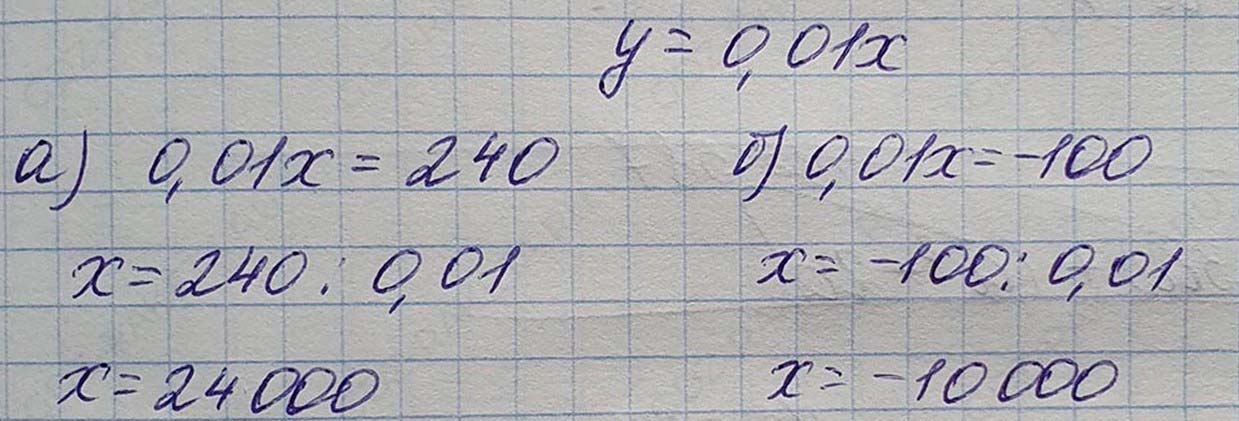 y = 0,01x
а) 0,01x = 240
x = 240 : 0,01
x = 24 000
б) 0,01x = -100
x = -100 : 0,01
x = -10 000